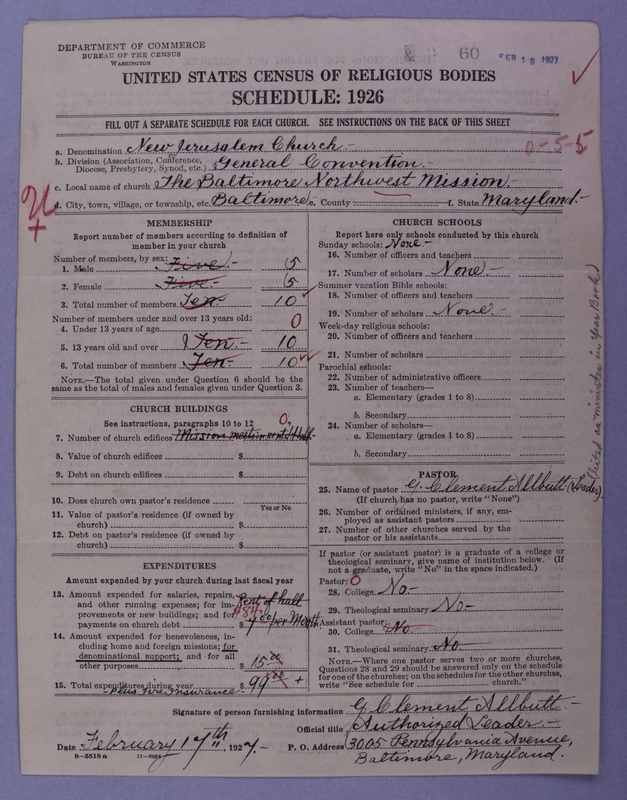 DEPARTMENT OF COMMERCE
BUREAU OF THE CENSUS
WASHINGTON
60
FEB 18 1927
UNITED STATES CENSUS OF RELIGIOUS BODIES
SCHEDULE: 1926
FILL OUT A SEPARATE SCHEDULE FOR EACH CHURCH. SEE INSTRUCTIONS ON THE BACK OF THIS SHEET
a. Denomination New Jerusalem Church.- 0-5-5
b. Division (Association, Conference, Diocese, Presbytery, Synod, etc.) General Convention.-
c. Local name of church The Baltimore Northwest Mission.-
d. City, town, village, or township, etc. Baltimore e. County f. State Maryland.-
MEMBERSHIP
Report number of members according to definition of
member in your church
Number of members, by sex:
1. Male Five.- 5
2. Female Five.- 5
3. Total number of members Ten.- 10
Number of members under and over 13 years old:
4. Under 13 years of age 0
5. 13 years old and over Ten.- 10
6. Total number of members Ten.- 10
NOTE.—The total given under Question 6 should be the
same as the total of males and females given under Question 3.
CHURCH BUILDINGS
See instructions, paragraphs 10 to 12 0
7. Number of church edifices Mission meets in rent. Hall.-
8. Value of church edifices $
9. Debt on church edifices $
10. Does church own pastor's residence
Yes or No
11. Value of pastor's residence (if owned by
church) $
12. Debt on pastor's residence (if owned by
church) $
EXPENDITURES
Amount expended by your church during last fiscal year
13. Amount expended for salaries, repairs,
and other running expenses; for im-
provements or new buildings; and for
payments on church debt $ Rent of hall $84 7.00 per Month
14. Amount expended for benevolences, in-
cluding home and foreign missions; for
denominational support; and for all
other purposes $ 15.00
15. Total expenditures during year $ 99.00 +
- Plus Fire Insurance.-
CHURCH SCHOOLS
Report here only schools conducted by this church
Sunday schools: None.-
16. Number of officers and teachers
17. Number of scholars None.-
Summer vacation Bible schools:
18. Number of officers and teachers
19. Number of scholars None.-
Week-day religious schools:
20. Number of officers and teachers
21. Number of scholars
Parochial schools:
22. Number of administrative officers
23. Number of teachers—
a. Elementary (grades 1 to 8)
b. Secondary
24. Number of scholars—
a. Elementary (grades 1 to 8)
b. Secondary
PASTOR
25. Name of pastor G. Clement Allbutt. (Leader)
(If church has no pastor, write "None")
26. Number of ordained ministers, if any, em-
ployed as assistant pastors
27. Number of other churches served by the
pastor or his assistants
If pastor (or assistant pastor) is a graduate of a college or
theological seminary, give name of institution below. (If
not a graduate, write "No" in the space indicated.
Pastor: 0
28. College No-
29. Theological seminary No-
Assistant pastor:
30. College No-
31. Theological seminary No.-
NOTE.—Where one pastor serves two or more churches,
Questions 28 and 29 should be answered only on the schedule
for one of the churches; on the schedules for the other churches,
write "See schedule for church."
(Listed as minister in Year Book)
Signature of person furnishing information G. Clement Allbutt.-
Official title Authorized Leader.-
Date February 17th, 1927.- P. O. Address 3005 Pennsylvania Avenue,
Baltimore, Maryland.
8—5518 a